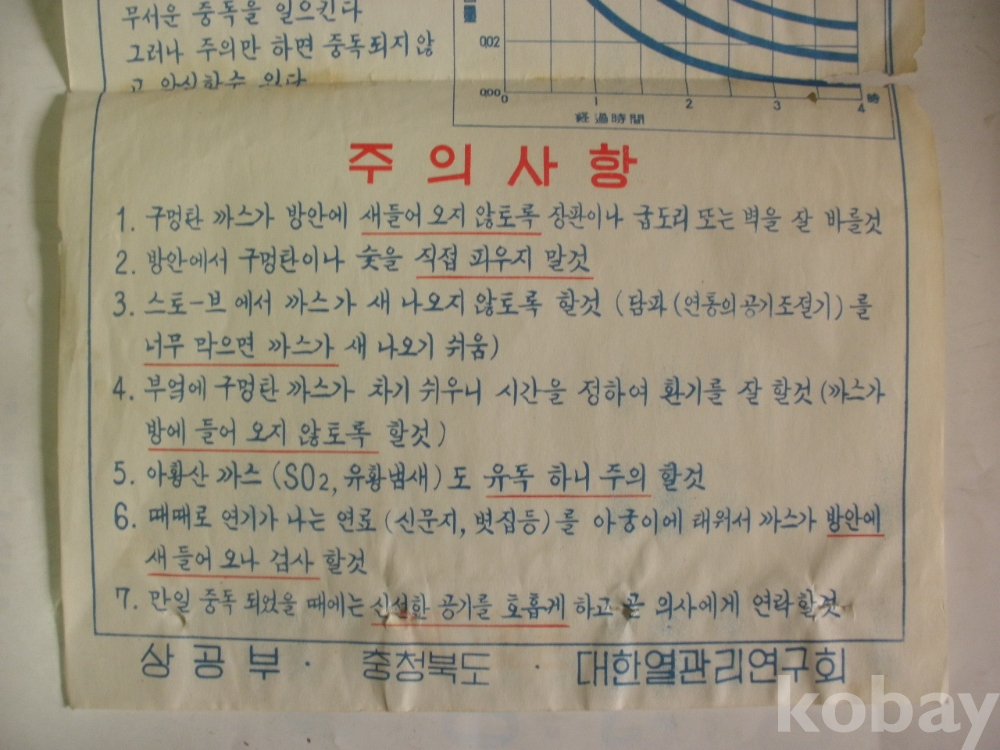 무서운 중독을 일으킨다
그러나 주의만 하면 중독되지않
고 안심할수 있다
量
002
000
0
1
2
3
4
時
経過時間
주의사항
1. 구멍탄 까스가 방안에 새들어 오지 않토록 장판이나 굽도리 또는 벽을 잘 바를것
2. 방안에서 구멍탄이나 숯을 직접 피우지 말것
3. 스토-브에서 까스가 새 나오지 않토록 할것 (담과 (연통의공기조절기)를
너무 막으면 까스가 새 나오기 쉬움)
4. 부엌에 구멍탄 까스가 차기 쉬우니 시간을 정하여 환기를 잘 할것 (까스가
방에 들어 오지 않토록 할것)
5. 아황산 까스 (SO2, 유황냄새)도 유독 하니 주의 할것
6. 때때로 연기가 나는 연료 (신문지, 볏집등)를 아궁이에 태워서 까스가 방안에
새 들어 오나 검사 할것
7. 만일 중독 되었을 때에는 신선한 공기를 호흡게 하고 곧 의사에게 연락할것
상공부 · 충청북도 · 대한열관리연구회
kobay